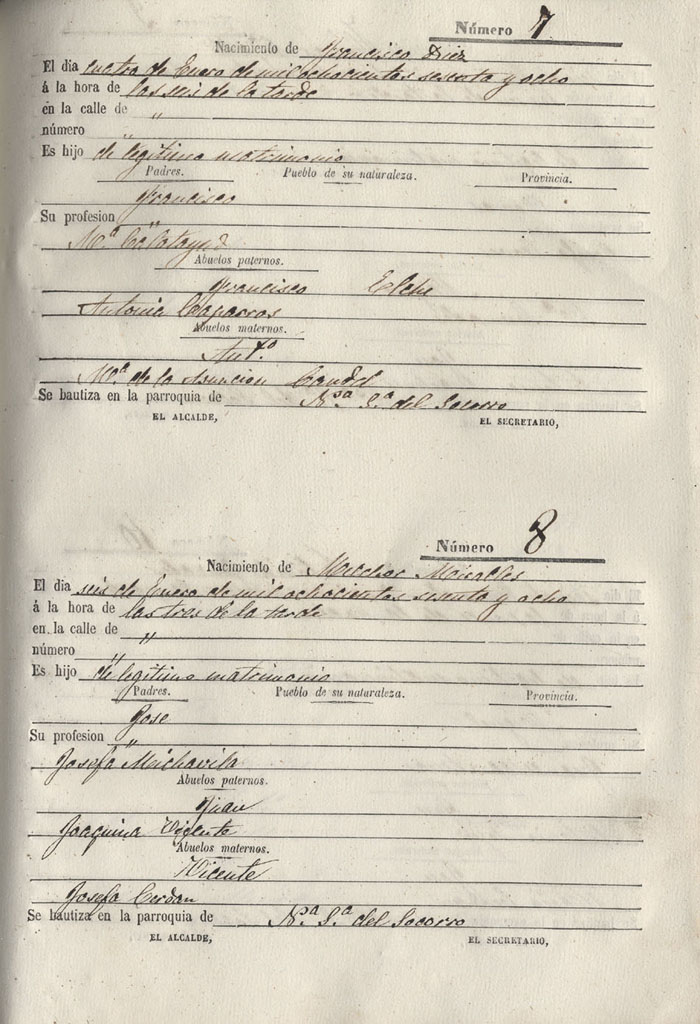 Número 7
Nacimiento de Francisco Diez
El dia cuatro de Enero de mil ochocientos sesenta y ocho
á la hora de las seis de la tarde
en la calle de "
número "
Es hijo de legitimo matrimonio
Padres. Pueblo de su naturaleza. Provincia.
Francisco
Su profesion "
Mª Calatayud
Abuelos paternos.
Francisco Elche
Antonia Caparros
Abuelos maternos.
Antº
Mª de la Asuncion
Se bautiza en la parroquia de Nsª Sª del Socorro
EL ALCALDE, EL SECRETARIO,
Número 8
Nacimiento de Melchor Miralles
El dia seis de Enero de mil ochocientos sesenta y ocho
á la hora de las tres de la tarde
en la calle de "
número "
Es hijo de legitimo matrimonio
Padres. Pueblo de su naturaleza. Provincia.
Jose
Su profesion "
Josefa Michavila
Abuelos paternos.
Juan
Joaquina Vicente
Abuelos maternos.
Vicente
Josefa Cerdan
Se bautiza en la parroquia de Nsª Sª del Socorro
EL ALCALDE, EL SECRETARIO,